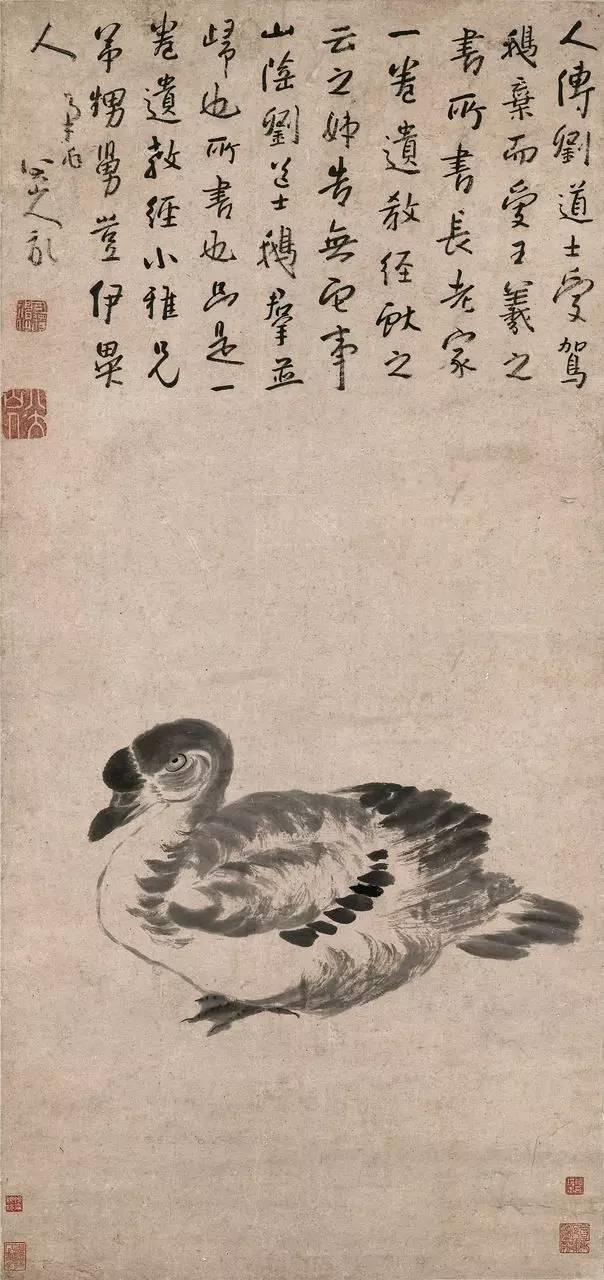 人傳劉道士愛駕
鵝棄而愛王羲之
書所書長老家
一卷遺教經獻之
云之姊告無事
山陰劉道士鵝羣並
歸也所書也只是一
卷遺教經小雅兄
弟甥舅豈伊異
人
八大山人